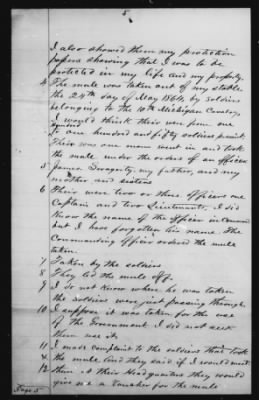 5
I also showed them my protection
papers showing that I was to be
protected in my life and my property.
4 The mule was taken out of my stable
the 24th day of May 1864, by soldiers
belonging to the 10th Michigan Cavalry
I would think their were from one
hundred
to one hundred and fifty soldiers present.
Their was one man went in and took
the mule under the orders of an officer
5 James Dragesty, my father, and my
mother and sisters
6 Their were two or three officers one
Captain and two Lieutenants, I did
Know the name of the officer in Command
but I have forgotten his name. The
Commanding officer ordered the mule
taken.
7 Taken by the soldiers
8 They led the mule off.
9 I do not Know where he was taken
the soldiers were just passing through.
10 I suppose it was taken for the use
of the Government I did not seek
them use it.
11 I made complaint to the soldiers that took
& the mule and they said if I would meet
12 them at their Headquarters they would
give me a voucher for the mule
Page 5